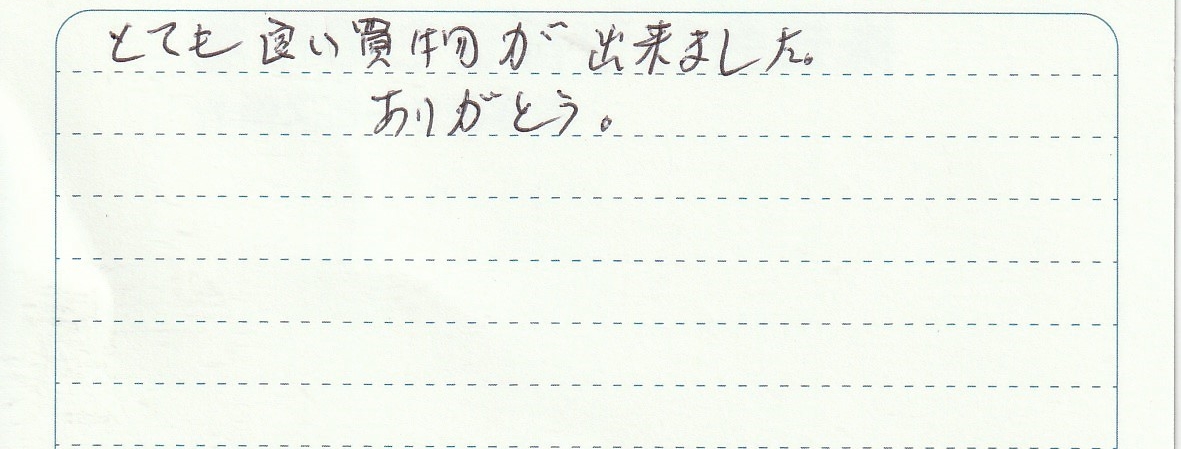 とても良い買物が出来ました。
ありがとう。